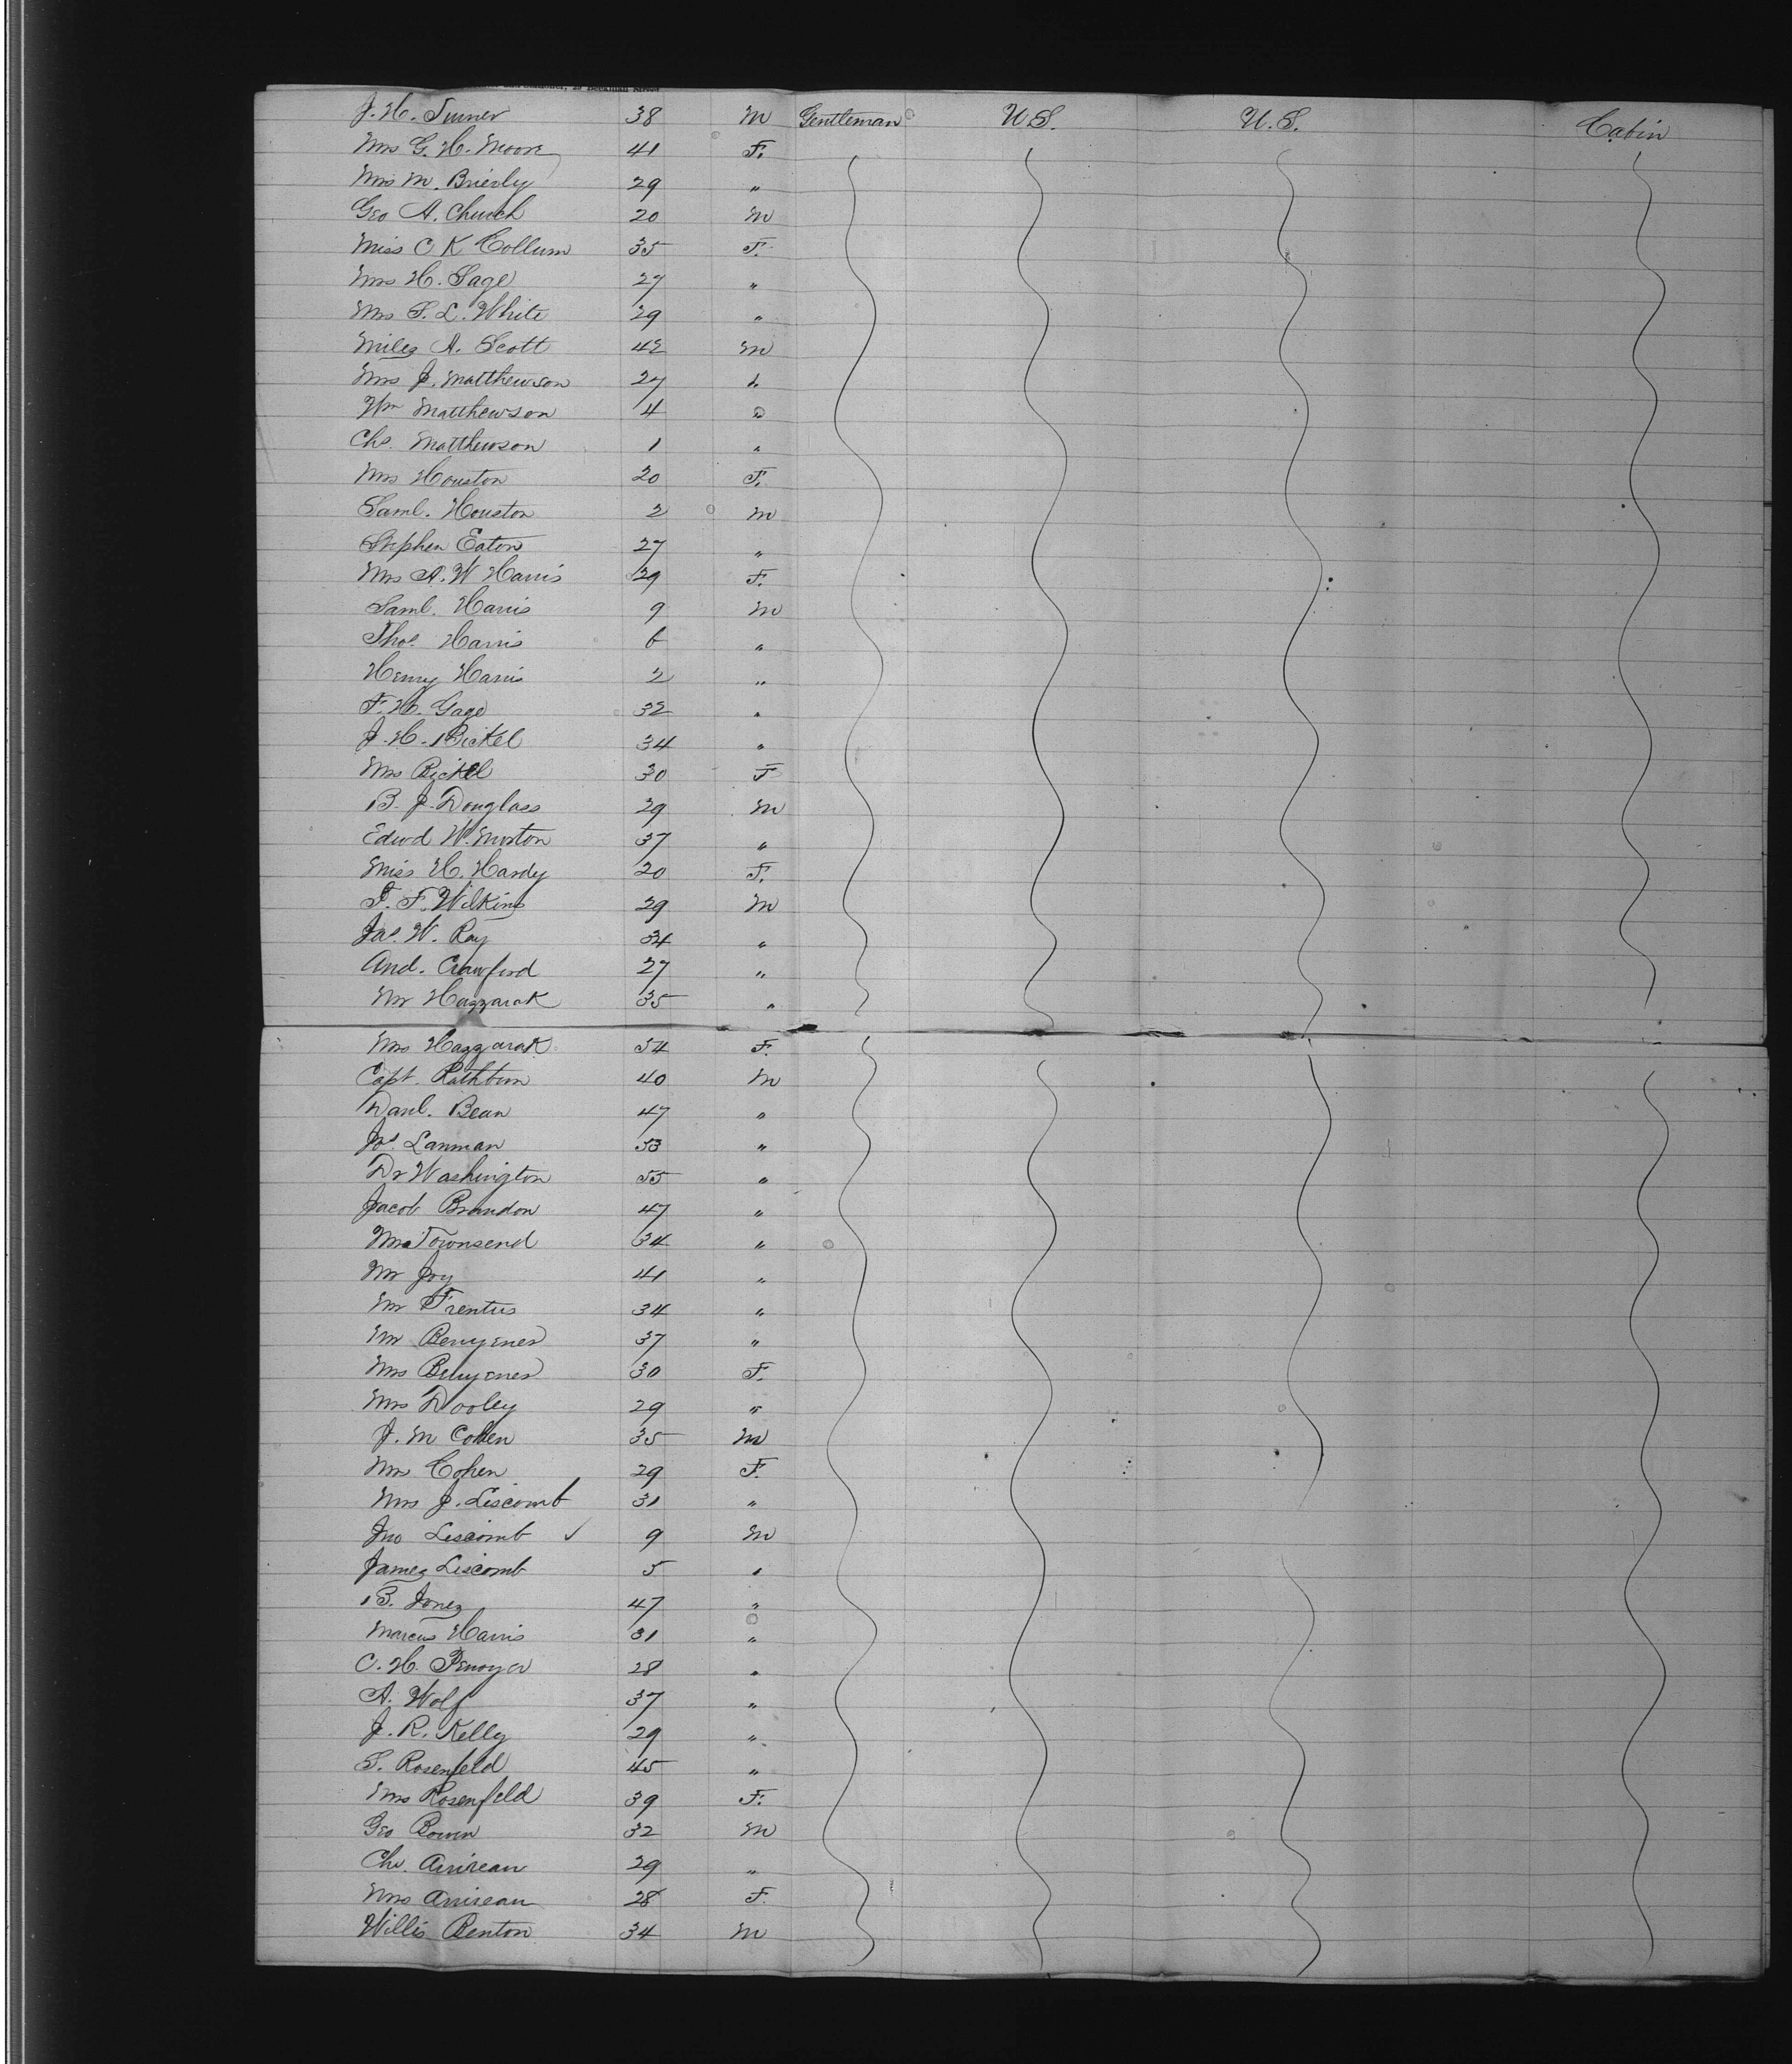 J. H. Turner 38 M Gentleman U.S. U.S. Cabin
Mrs G. H. Moore 41 F.
Mrs M. Brierly 29 "
Geo A. Church 20 M
Miss C K Collum 35 F.
Mrs H. Gage 27 "
Mrs S. L. White 29 "
Miles A. Scott 42 M
Mrs J. Matthewson 27 "
Wm Matthewson 4 "
Chs. Matthewson 1 "
Mrs Houston 20 F.
Saml. Houston 2 M
Stephen Eaton 27 "
Mrs A. W Harris 29 F.
Saml. Harris 9 M
Thos. Harris 6 "
Henry Harris 2 "
F. H. Gage 32 "
J. H. Bickel 34 "
Mrs Bickel 30 F
B. J. Douglass 29 M
Edwd W. Morton 37 "
Miss H. Hardy 20 F.
F. Wilkins 29 M
Jas. W. Ray 34 "
And. Crawford 27 "
Mr Hazzarak 35 "
Mrs Hazzarak 34 F.
Capt. Rathbun 40 M
Danl. Bean 47 "
Js. Lanman 53 "
Dr Washington 55 "
Jacob Brandon 47 "
Townsend 34 "
Mr Joy 41 "
Mr 34 "
Mr 37 "
Mrs 30 F.
Mrs Dooley 29 "
J. M Cohen 35 M
Mrs Cohen 29 F.
Mrs J. Liscomb 31 "
Jno Liscomb ✓ 9 M
James Liscomb 5 "
B. Jones 47 "
Marcus Harris 31 "
C. H. Penoyer 28 "
A. Wolf 37 "
J. R. Kelly 29 "
S. Rosenfeld 45 "
Mrs Rosenfeld 39 F.
Geo Bowen 32 M
Chs. 29 "
Mrs 28 F.
Willis Benton 34 M